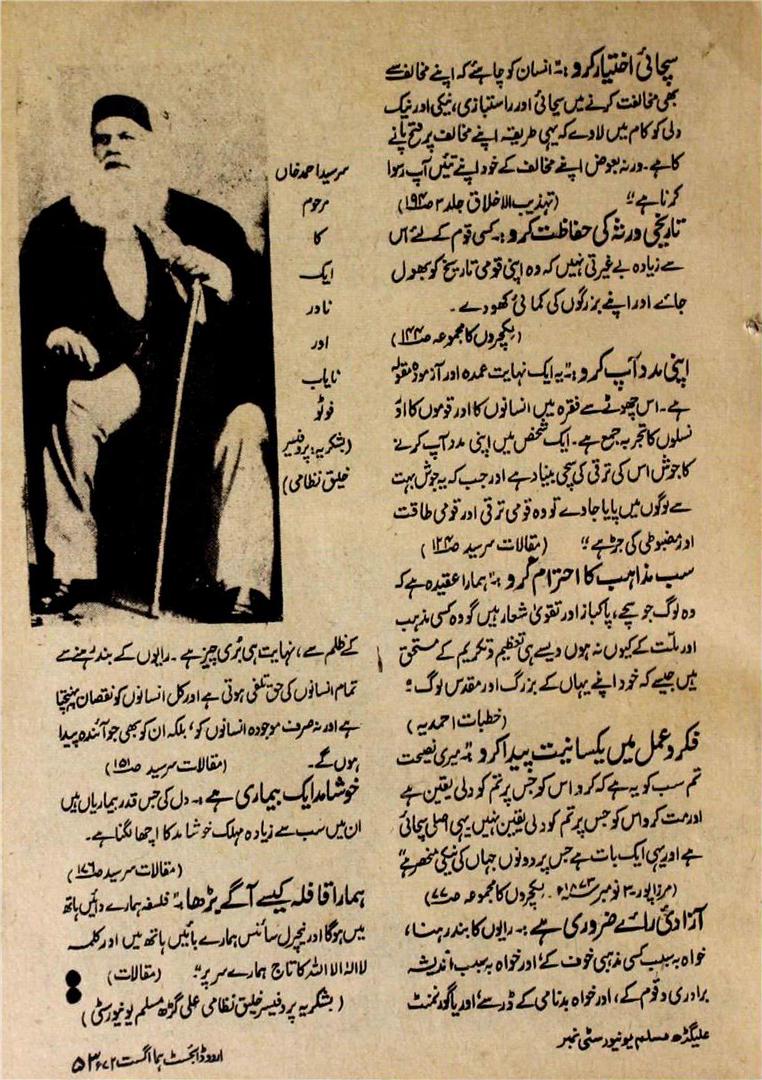 سچائی اختیار کرو :۔ ”انسان کو چاہئے کہ اپنے مخالف سے
بھی مخالفت کرنے میں سچائی اور راستبازی، نیکی اور نیک
دلی کو کام میں لاوے کہ یہی طریقہ اپنے مخالف پر فتح پانے
کا ہے۔ ورنہ بعوض اپنے مخالف کے خود اپنے تئیں آپ رسوا
کرنا ہے“ (تہذیب الاخلاق جلد ۳ ص۱۹۴)
تاریخی ورثہ کی حفاظت کرو :۔ کسی قوم کے لئے اس
سے زیادہ بے غیرتی نہیں کہ وہ اپنی قومی تاریخ کو بھول
جائے اور اپنے بزرگوں کی کمائی کھو دے۔
(لیکچروں کا مجموعہ ص۱۴۴)
اپنی مدد آپ کرو :۔ ”یہ ایک نہایت عمدہ اور آزمودہ مقولہ
ہے۔ اس چھوٹے سے فقرہ میں انسانوں کا اور قوموں کا اور
نسلوں کا تجربہ جمع ہے۔ ایک شخص میں اپنی مدد آپ کرنے
کا جوش اس کی ترقی کی سچی بنیاد ہے اور جب کہ یہ جوش بہت
سے لوگوں میں پایا جاوے تو وہ قومی ترقی اور قومی طاقت
اور مضبوطی کی جڑ ہے“ (مقالات سرسید ص۱۲۴)
سب مذاہب کا احترام کرو :۔ ”ہمارا عقیدہ ہے کہ
وہ لوگ جو سچے، پاکباز اور تقویٰ شعار ہیں گو وہ کسی مذہب
اور ملت کے کیوں نہ ہوں ویسے ہی تعظیم و تکریم کے مستحق
ہیں جیسے کہ خود اپنے یہاں کے بزرگ اور مقدس لوگ“
(خطبات احمدیہ)
فکر و عمل میں یکسانیت پیدا کرو :۔ ”میری نصیحت
تم سب کو یہ ہے کہ کرو اس کو جس پر تم کو دلی یقین ہے
اور مت کرو اس کو جس پر تم کو دلی یقین نہیں یہی اصلی سچائی
ہے اور یہی ایک بات ہے جس پر دونوں جہاں کی نیکی منحصر ہے“
(مرزا پور۔ ۳ نومبر ۱۸۷۳ء۔ لیکچروں کا مجموعہ ص۷۷)
آزادئ رائے ضروری ہے :۔ رایوں کا بند رہنا،
خواہ بہ سبب کسی مذہبی خوف کے اور خواہ بہ سبب اندیشہ
برادری و قوم کے، اور خواہ بدنامی کے ڈر سے اور یا گورنمنٹ
سرسید احمد خاں
مرحوم
کا
ایک
نادر
اور
نایاب
فوٹو
(بشکریہ: پروفیسر
خلیق نظامی)
کے ظلم سے، نہایت ہی بُری چیز ہے۔ رایوں کے بند رہنے سے
تمام انسانوں کی حق تلفی ہوتی ہے اور کل انسانوں کو نقصان پہنچتا
ہے اور نہ صرف موجودہ انسانوں کو، بلکہ ان کو بھی جو آئندہ پیدا
ہوں گے۔ (مقالات سرسید ص۱۵۱)
خوشامد ایک بیماری ہے :۔ دل کی جس قدر بیماریاں ہیں
ان میں سب سے زیادہ مہلک خوشامد کا اچھا لگنا ہے۔
(مقالات سرسید ص۱۷۶)
ہمارا قافلہ کیسے آگے بڑھا :۔ ”فلسفہ ہمارے دائیں ہاتھ
میں ہوگا اور نیچرل سائنس ہمارے بائیں ہاتھ میں اور کلمہ
لا الہ الا اللہ کا تاج ہمارے سر پر“۔ (مقالات)
(بشکریہ پروفیسر خلیق نظامی علی گڑھ مسلم یونیورسٹی)
علیگڑھ مسلم یونیورسٹی نمبر
اردو ڈائجسٹ ہما اگست ۷۲ء ۵۳